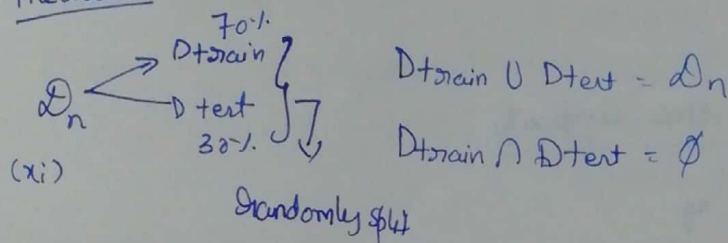 70%
Dtrain
Dn
Dtest
30%
(xi)
Randomly split
Dtrain ∪ Dtest = Dn
Dtrain ∩ Dtest = ∅